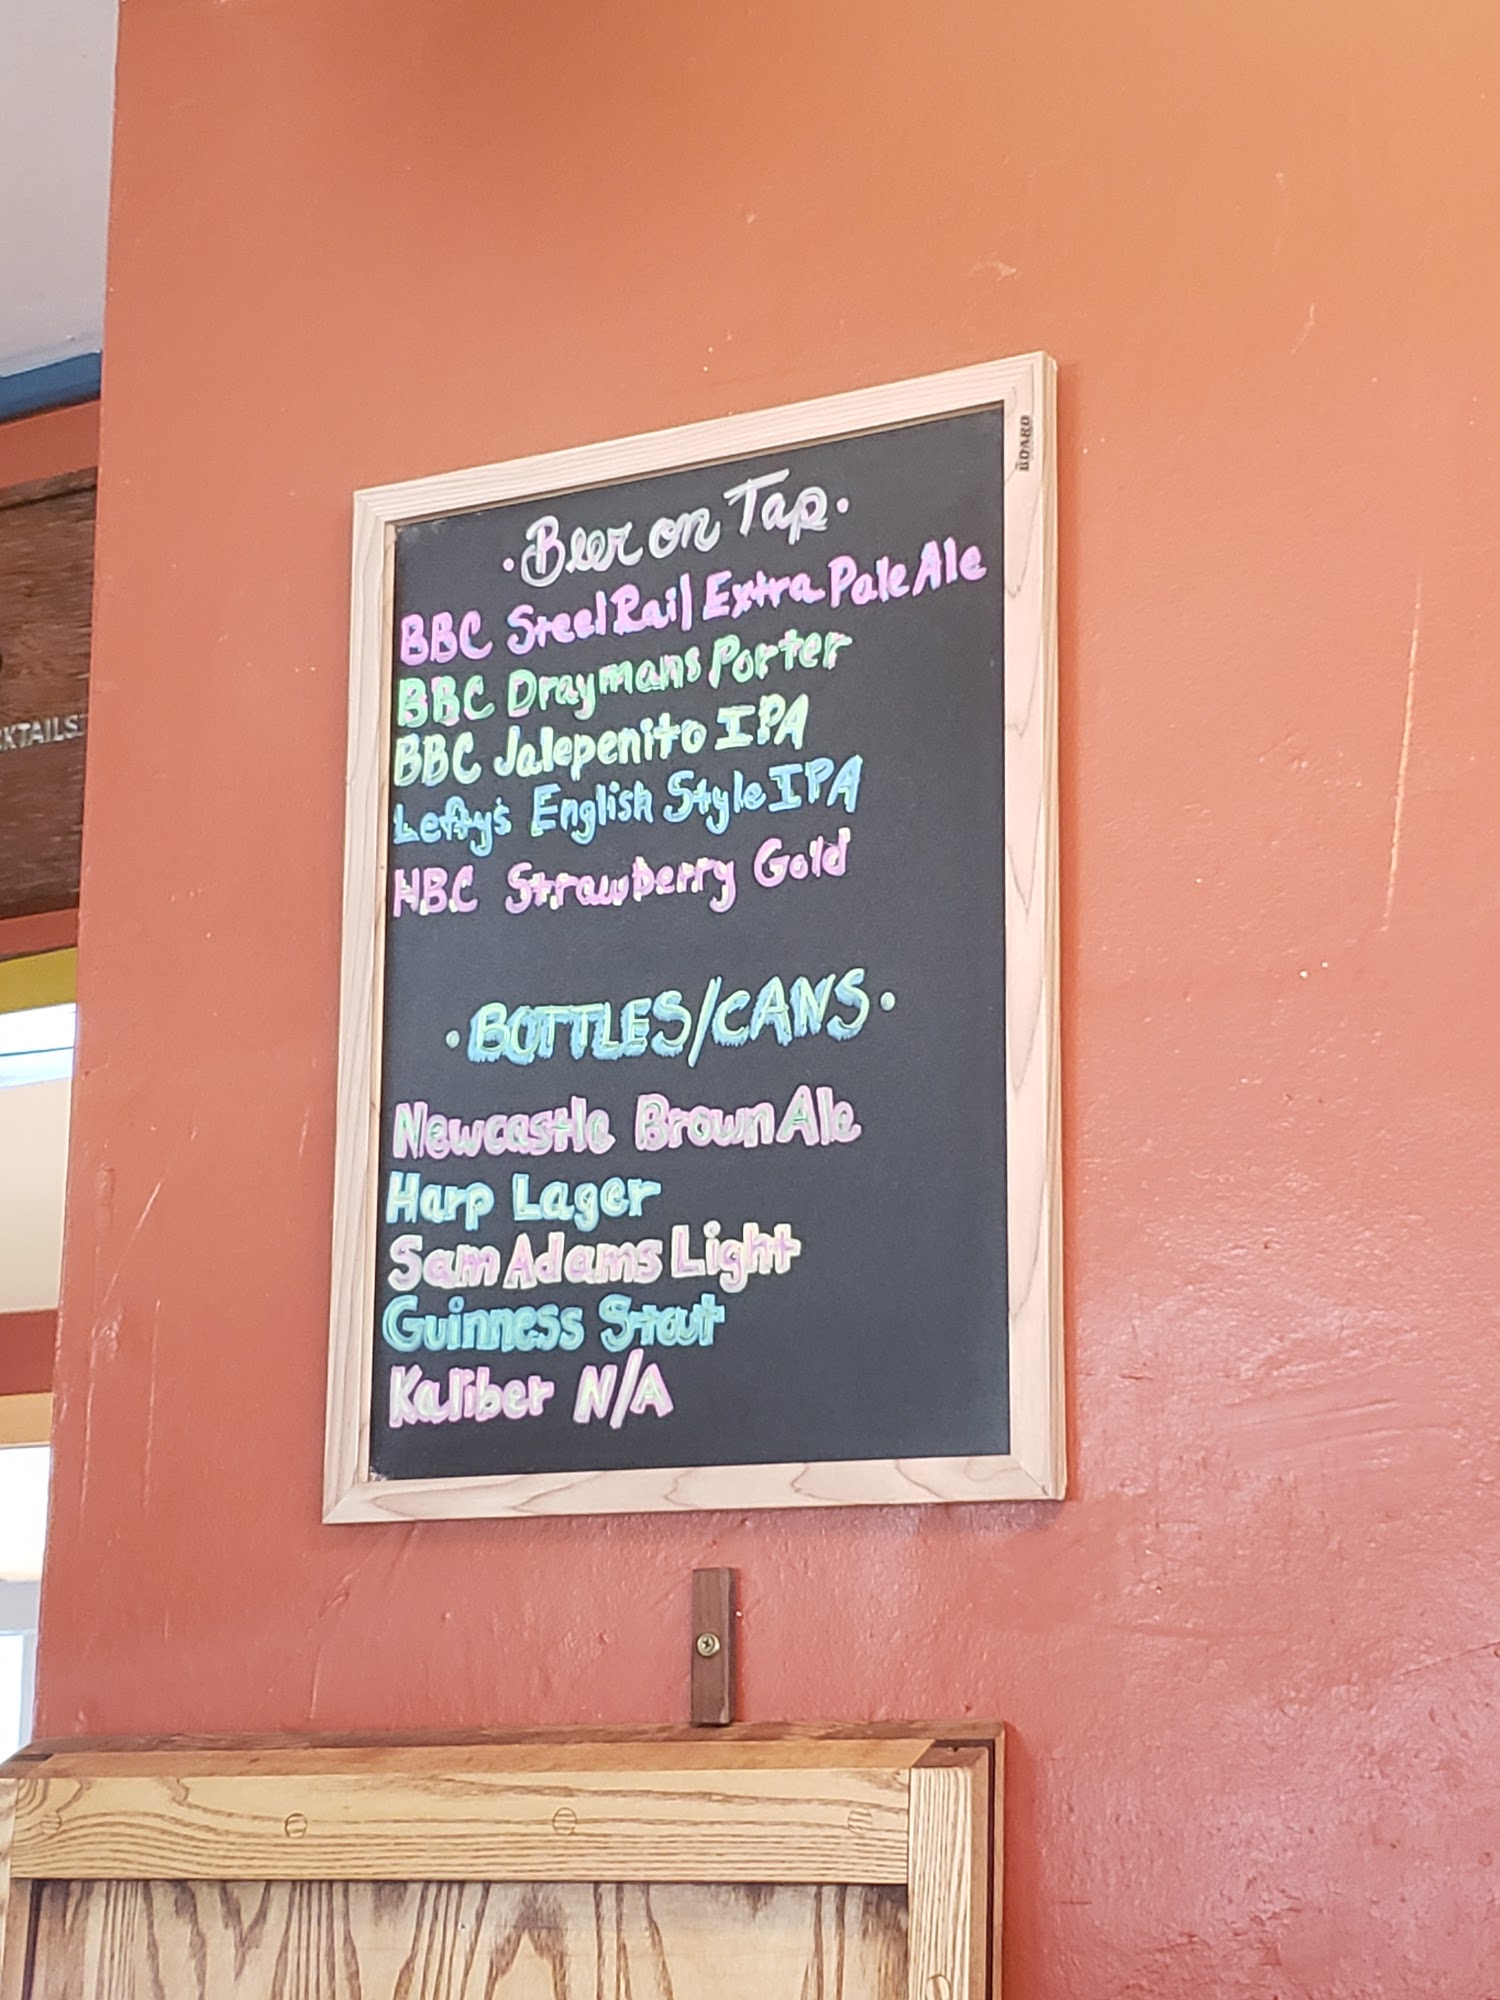 BOARD
· Beer on Tap ·
BBC Steel Rail Extra Pale Ale
BBC Draymans Porter
BBC Jalepenito IPA
Lefty's English Style IPA
HBC Strawberry Gold
· BOTTLES/CANS ·
Newcastle Brown Ale
Harp Lager
Sam Adams Light
Guinness Stout
Kaliber N/A
KTAILS